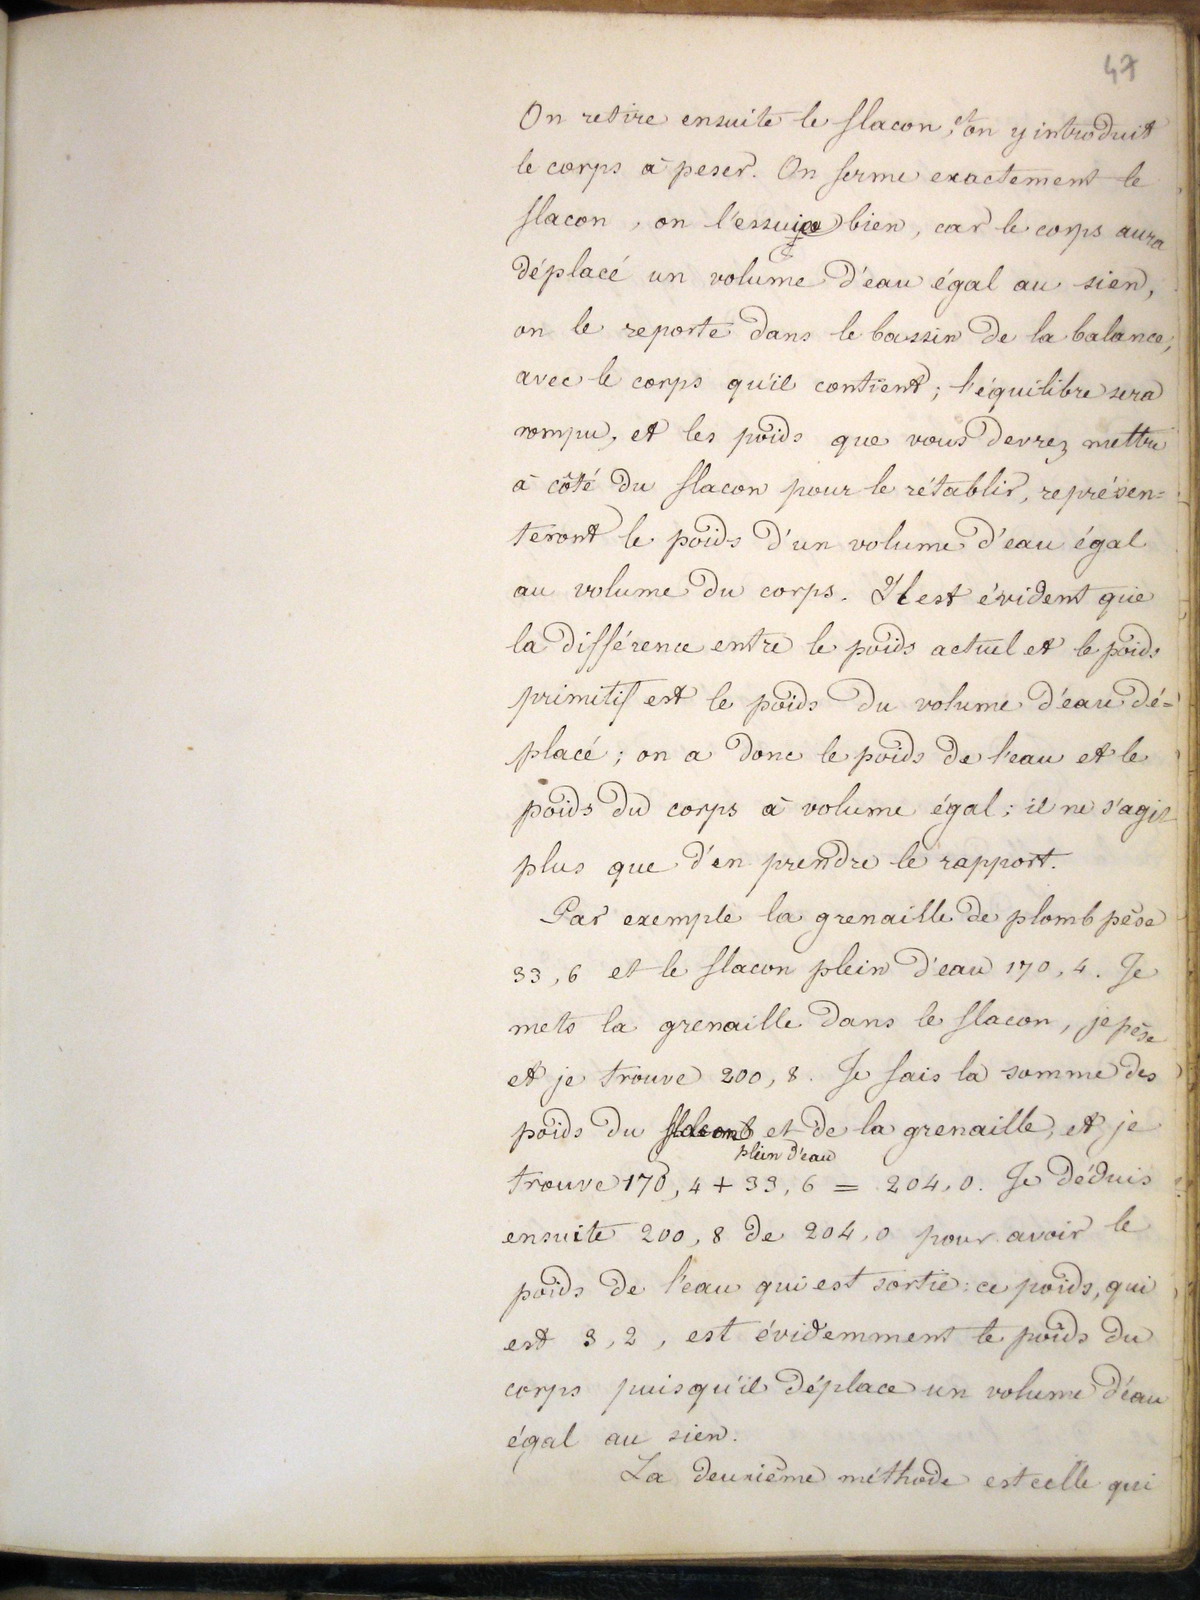 47
On retire ensuite le flacon, et on y introduit
le corps à peser. On ferme exactement le
flacon, on l'essuie bien, car le corps aura
déplacé un volume d'eau égal au sien,
on le reporte dans le bassin de la balance,
avec le corps qu'il contient; l'équilibre sera
rompu, et les poids que vous devrez mettre
à côté du flacon pour le rétablir, représen=
teront le poids d'un volume d'eau égal
au volume du corps. Il est évident que
la différence entre le poids actuel et le poids
primitif est le poids du volume d'eau dé=
placé; on a donc le poids de l'eau et le
poids du corps à volume égal; il ne s'agit
plus que d'en prendre le rapport.
Par exemple la grenaille de plomb pèse
33,6 et le flacon plein d'eau 170,4. Je
mets la grenaille dans le flacon, je pèse
et je trouve 200,8. Je fais la somme des
poids du flacon et de la grenaille, et je
plein d'eau
trouve 170,4 + 33,6 = 204,0. Je déduis
ensuite 200,8 de 204,0 pour avoir le
poids de l'eau qui est sortie: ce poids, qui
est 3,2, est évidemment le poids du
corps puisqu'il déplace un volume d'eau
égal au sien.
La deuxième méthode est celle qui